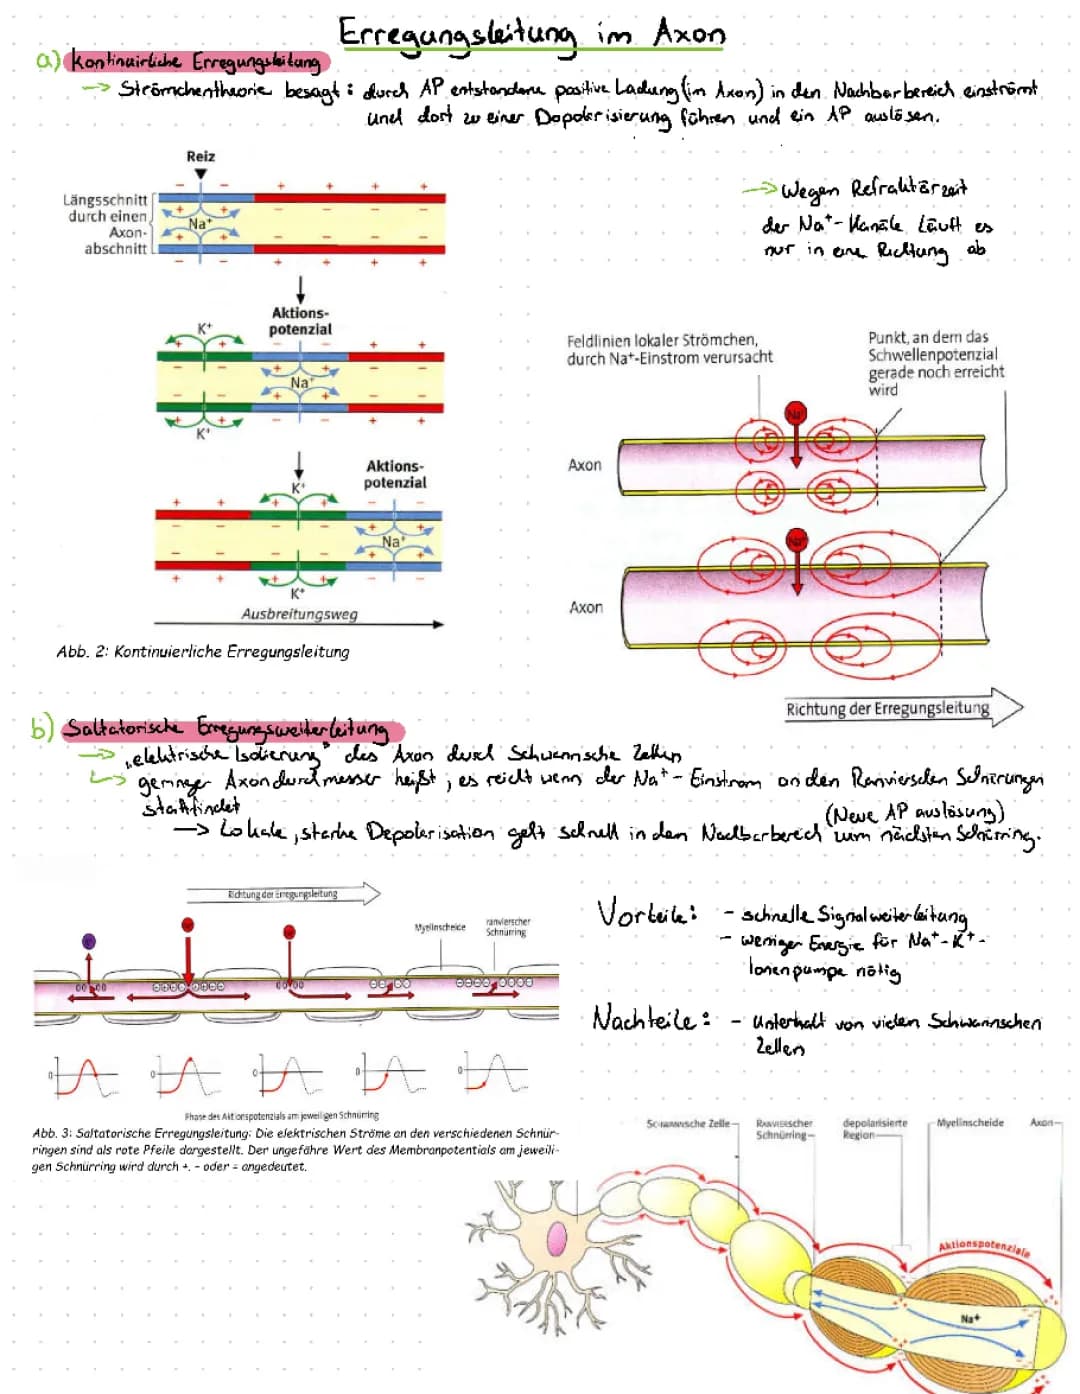 Erregungsleitung im Axon
a) Kontinuirliche Erregungsleitung
→ Strömchentheorie besagt: durch AP entstandene positive Ladung (im Axon) in den Nachbarbereich einströmt
und dort zu einer Depolarisierung führen und ein AP auslösen.
Reiz
Längsschnitt
durch einen
Axon-
abschnitt
Na⁺
→ Wegen Refraktärzeit
der Na⁺-Kanäle läuft es
nur in eine Richtung ab
Aktions-
potenzial
K⁺
Na⁺
K⁺
Feldlinien lokaler Strömchen,
durch Na⁺-Einstrom verursacht
Punkt, an dem das
Schwellenpotenzial
gerade noch erreicht
wird
Na⁺
Axon
Aktions-
potenzial
K⁺
Na⁺
K⁺
Ausbreitungsweg
Na⁺
Axon
Abb. 2: Kontinuierliche Erregungsleitung
Richtung der Erregungsleitung
b) Saltatorische Erregungsweiterleitung
→ „elektrische Isolierung" des Axon durch Schwannsche Zellen
↳ geringer Axondurchmesser heißt, es reicht wenn der Na⁺-Einstrom an den Ranvierschen Schnürungen
stattfindet
(Neue AP auslösung)
→ Lokale, starke Depolarisation geht schnell in den Nachbarbereich zum nächsten Schnürring.
Richtung der Erregungsleitung
Myelinscheide
ranvierscher
Schnürring
Vorteile: - schnelle Signalweiterleitung
- weniger Energie für Na⁺-K⁺-
Ionenpumpe nötig
Nachteile: - Unterhalt von vielen Schwannschen
Zellen
0
0
0
0
0
Phase des Aktionspotenzials am jeweiligen Schnürring
Abb. 3: Saltatorische Erregungsleitung: Die elektrischen Ströme an den verschiedenen Schnür-
ringen sind als rote Pfeile dargestellt. Der ungefähre Wert des Membranpotentials am jeweili-
gen Schnürring wird durch +, - oder = angedeutet.
Schwannsche Zelle
Ranvierscher
Schnürring
depolarisierte
Region
Myelinscheide
Axon
Aktionspotenziale
Na⁺